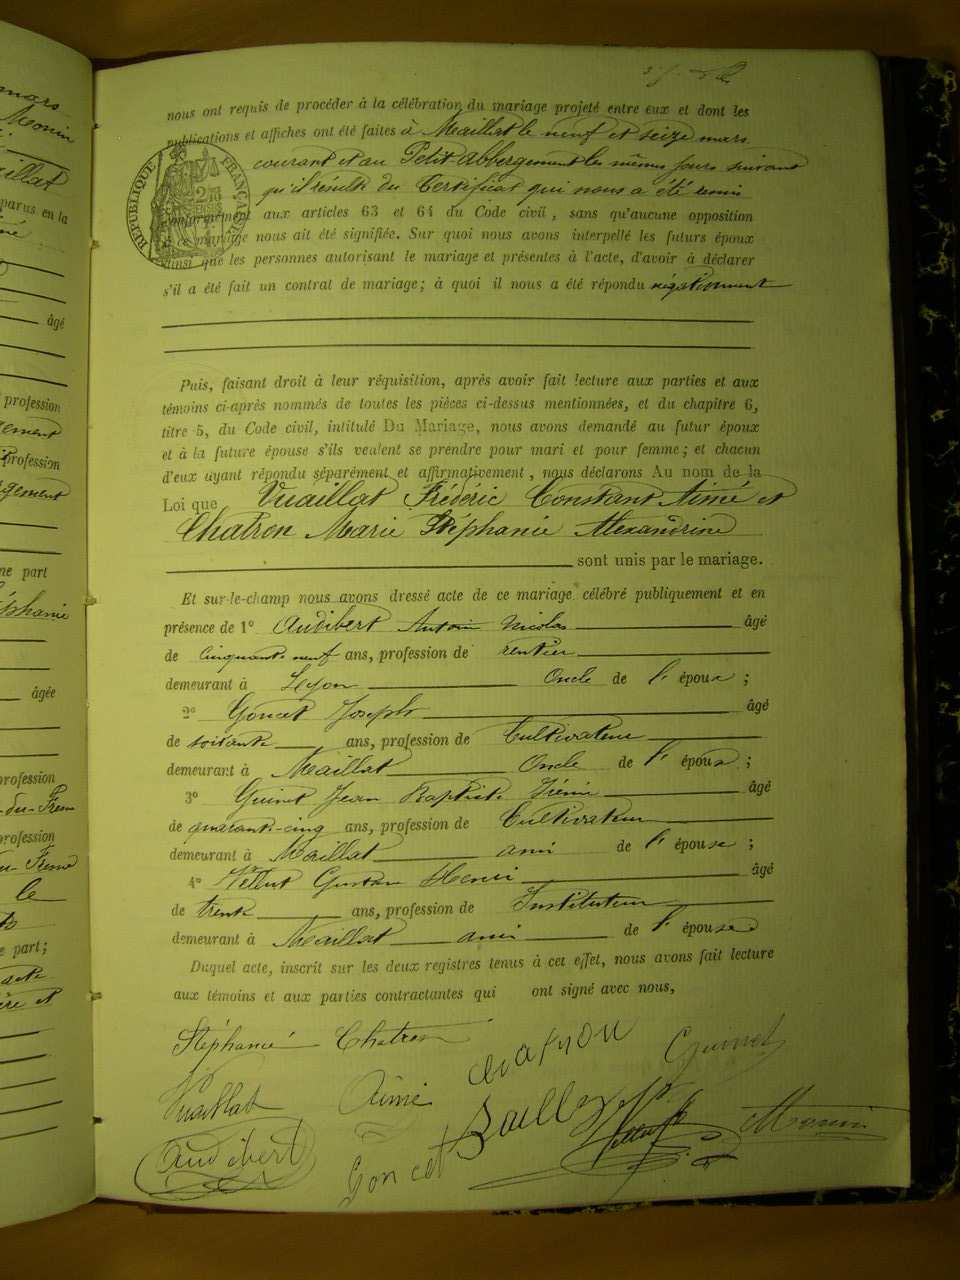 mars
Monin
uillat
parus en la
âgé
profession
profession
ne part
Stéphanie
âgée
profession
-du-Fresne
profession
le
e part;
nous ont requis de procéder à la célébration du mariage projeté entre eux et dont les
publications et affiches ont été faites à Maillat le neuf et seize mars
courant et au Petit Abbergement les mêmes jours suivant
qu'il résulte du Certificat qui nous a été remis
RÉPUBLIQUE FRANÇAISE
conformément aux articles 63 et 64 du Code civil, sans qu'aucune opposition
à ce mariage nous ait été signifiée. Sur quoi nous avons interpellé les futurs époux
ainsi que les personnes autorisant le mariage et présentes à l'acte, d'avoir à déclarer
s'il a été fait un contrat de mariage; à quoi il nous a été répondu négativement
Puis, faisant droit à leur réquisition, après avoir fait lecture aux parties et aux
témoins ci-après nommés de toutes les pièces ci-dessus mentionnées, et du chapitre 6,
titre 5, du Code civil, intitulé Du Mariage, nous avons demandé au futur époux
et à la future épouse s'ils veulent se prendre pour mari et pour femme; et chacun
d'eux ayant répondu séparément et affirmativement, nous déclarons Au nom de la
Loi que Vuaillat Frédéric Constant Aimé et
Chatron Marie Stéphanie Alexandrine
sont unis par le mariage.
Et sur-le-champ nous avons dressé acte de ce mariage célébré publiquement et en
présence de 1° Audibert Antoine Nicolas âgé
de cinquante-neuf ans, profession de rentier
demeurant à Lyon Oncle de l' époux ;
2° Goncet Joseph âgé
de soixante ans, profession de Cultivateur
demeurant à Maillat Oncle de l' époux ;
3° Guinet Jean Baptiste Irénée âgé
de quarante-cinq ans, profession de Cultivateur
demeurant à Maillat ami de l' épouse ;
4° Gustave Henri âgé
de trente ans, profession de Instituteur
demeurant à Maillat ami de l' épouse
Duquel acte, inscrit sur les deux registres tenus à cet effet, nous avons fait lecture
aux témoins et aux parties contractantes qui ont signé avec nous,
Stéphanie Chatron
Chatron Guinet
Vuaillat Aimé
Monin
Audibert Goncet